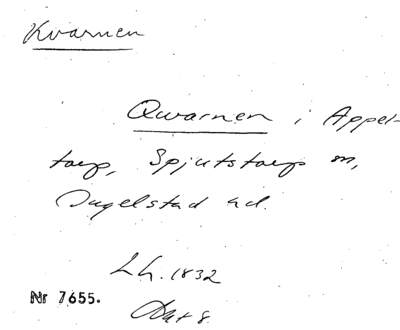 Kvarnen
Qwarnen i Appel-
torp, Spjutstorps sn,
Ingelstad hd.
Lh. 1832
Nr 7655.
Akt 8